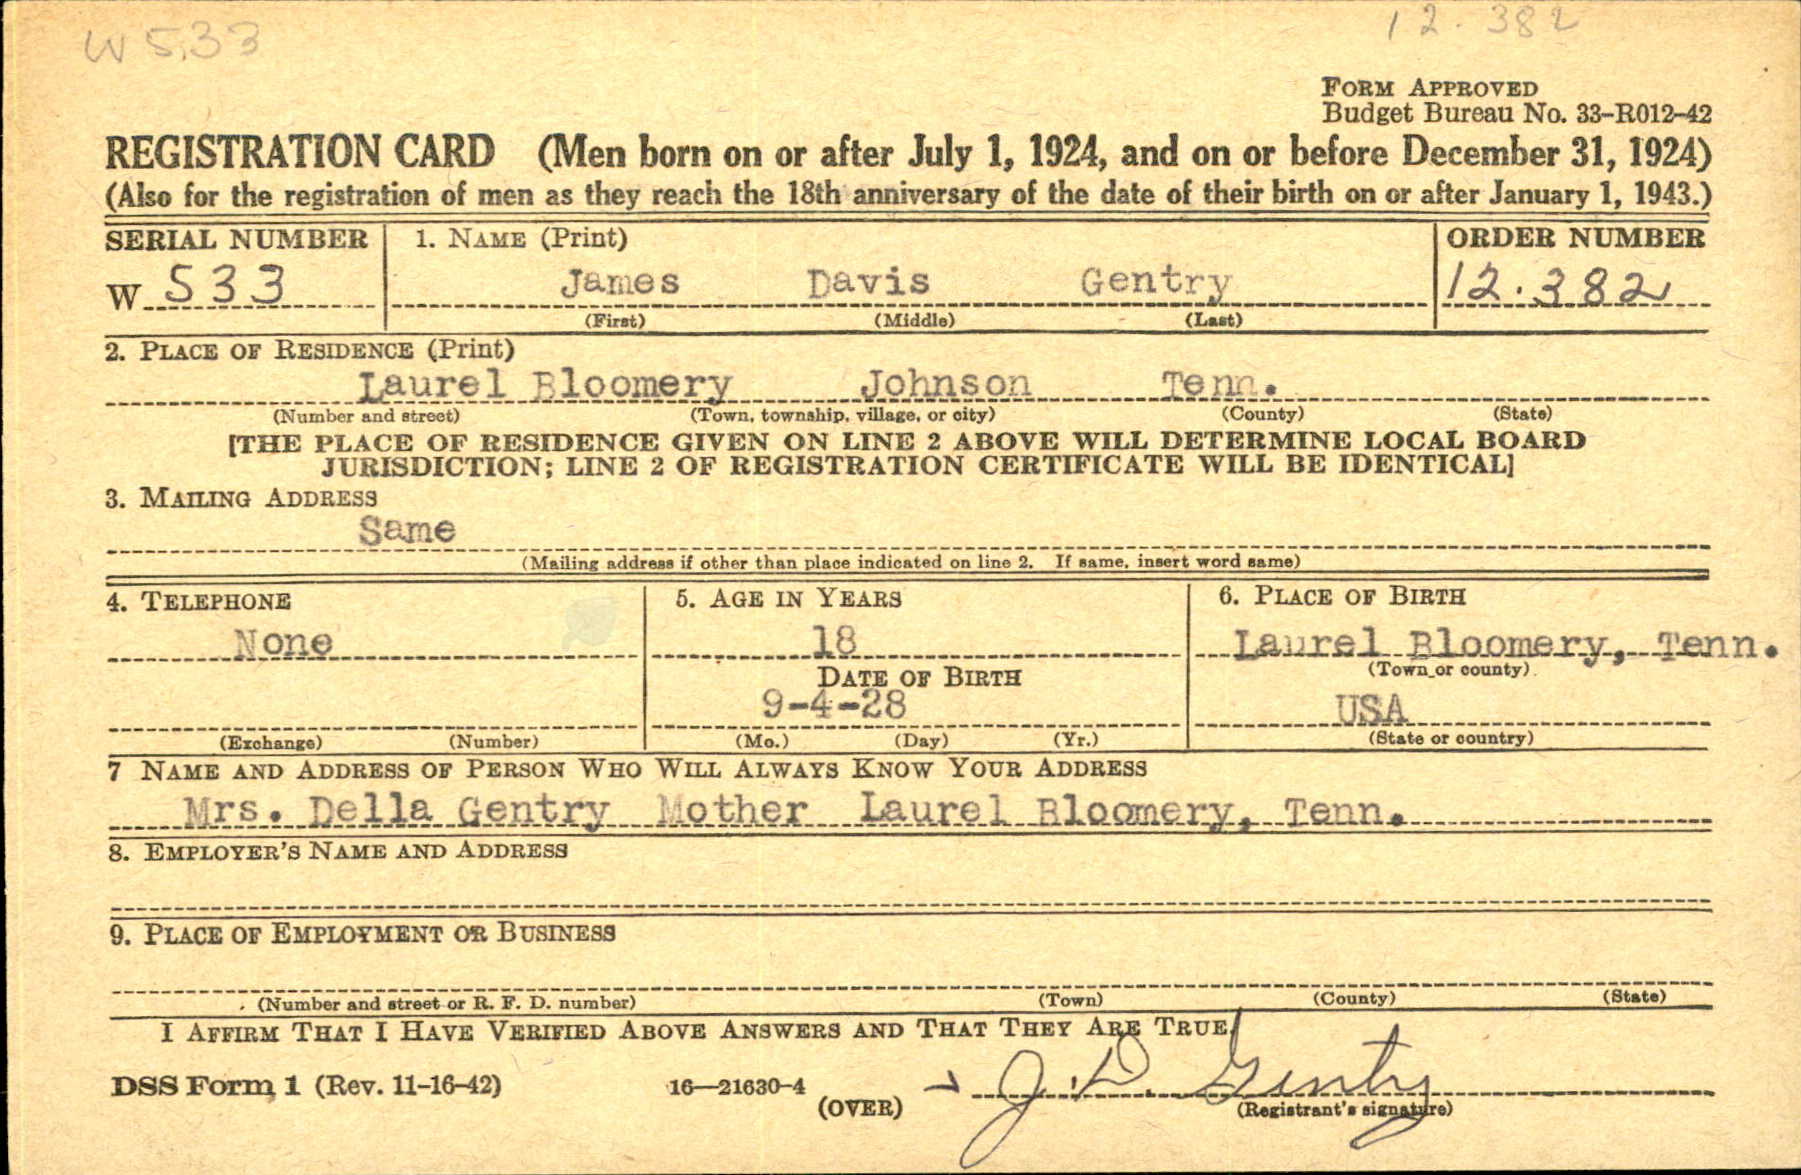 W 533 12.382
FORM APPROVED
Budget Bureau No. 33–R012–42
REGISTRATION CARD (Men born on or after July 1, 1924, and on or before December 31, 1924)
(Also for the registration of men as they reach the 18th anniversary of the date of their birth on or after January 1, 1943.)
SERIAL NUMBER 1. NAME (Print) ORDER NUMBER
W 533 James Davis Gentry 12.382
(First) (Middle) (Last)
2. PLACE OF RESIDENCE (Print)
Laurel Bloomery Johnson Tenn.
(Number and street) (Town, township, village, or city) (County) (State)
[THE PLACE OF RESIDENCE GIVEN ON LINE 2 ABOVE WILL DETERMINE LOCAL BOARD
JURISDICTION; LINE 2 OF REGISTRATION CERTIFICATE WILL BE IDENTICAL]
3. MAILING ADDRESS
Same
(Mailing address if other than place indicated on line 2. If same, insert word same)
4. TELEPHONE 5. AGE IN YEARS 6. PLACE OF BIRTH
None 18 Laurel Bloomery, Tenn.
DATE OF BIRTH (Town or county)
9-4-28 USA
(Exchange) (Number) (Mo.) (Day) (Yr.) (State or country)
7 NAME AND ADDRESS OF PERSON WHO WILL ALWAYS KNOW YOUR ADDRESS
Mrs. Della Gentry Mother Laurel Bloomery, Tenn.
8. EMPLOYER'S NAME AND ADDRESS
9. PLACE OF EMPLOYMENT OR BUSINESS
(Number and street or R. F. D. number) (Town) (County) (State)
I AFFIRM THAT I HAVE VERIFIED ABOVE ANSWERS AND THAT THEY ARE TRUE.
DSS Form 1 (Rev. 11–16–42) 16—21630-4 J. D. Gentry
(OVER) (Registrant's signature)